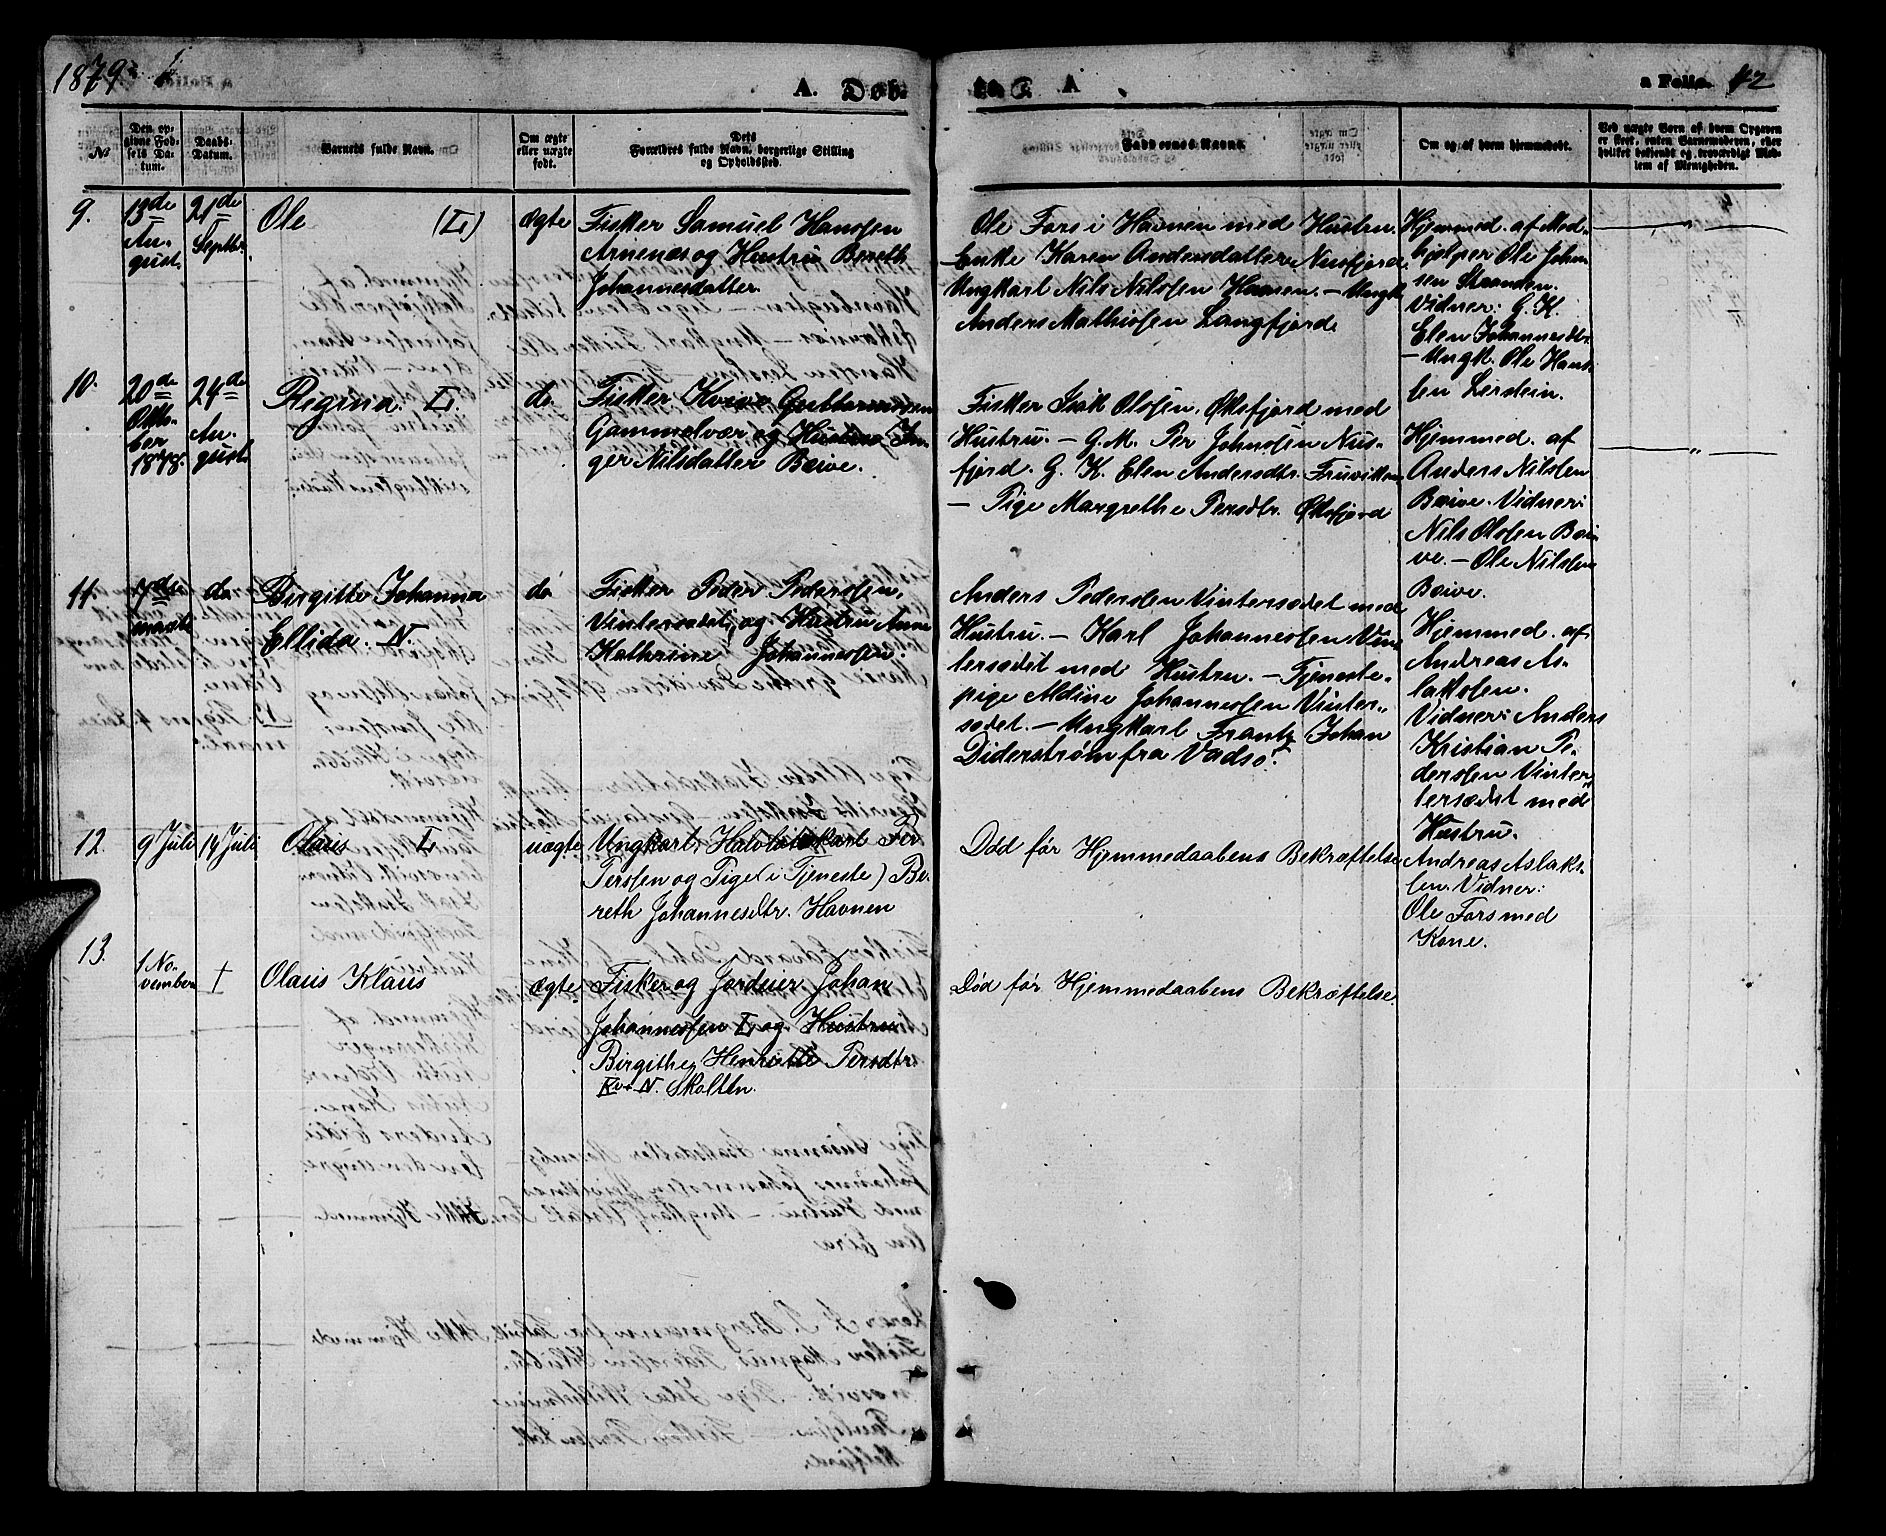 1879
A. Døb
te. A
a Folio. 42
No
Den opgivne Fødsels Datum.
Daabs-Datum.
Barnets fulde Navn.
Om ægte eller uægte født.
Forældres fulde Navn, borgerlige Stilling og Opholdssted.
Faddernes Navne.
Om og af hvem hjemmedøbt.
Ved uægte Børn af hvem Opgaven er skeet, enten Barnemoderen, eller hvilket bekjendt og troværdigt Medlem af Menigheden.
9.
13de
August.
21de
Septbr.
Ole (L)
ægte
Fisker Samuel Hansen
Arnenæs og Hustru Bereth
Johannesdatter.
Ole Fors i Havnen med Hustru.
Enke Karen Andersdatter Nusfjord.
Ungkarl Nils Nilssen Havnen. - Ungk.
Anders Mathissen Langfjord.
Hjemmed. af Med-
hjelper Ole John-
sen Stranden.
Vidner: G. K.
Elen Johannesdtr.
- Ungk. Ole Han-
sen Lerstein.
10.
20de
Okto-
ber
1878.
24de
Au-
gust.
Regina. L.
do
Fisker Kvive Guttormsen
Gammelvær og Hustru In-
ger Nilsdatter Boive.
Fisker Isak Olsen, Øksfjord med
Hustru. - G. M. Per Johnsen Nus-
fjord. G. K. Elen Andersdtr. Fruvikken
- Pige Margrethe Persdtr. Øksfjord
Hjemmed. af
Anders Nilsen
Boive. Vidner:
Nils Olsen Boi-
ve. - Ole Nilsen
Boive.
11.
7de
do
Birgitte Johanna
Ellida. N.
do
Fisker Peder Pedersen,
Vintersædet, og Hustru Anne
Kathrine Johannessen.
Anders Pedersen Vintersædet med
Hustru. - Karl Johannessen Vin-
tersædet med Hustru. - Tjeneste-
pige Aldine Johannessen Vinter-
sædet. - Ungkarl Frantz Johan
Diderstrøm fra Vadsø.
Hjemmed. af
Andreas As-
laksen.
Vidner: Anders
Kristian Pe-
dersen Vinter-
tersædet med
Hustru.
12.
9 Juli
14 Juli
Olaus L
uægte
Ungkarl, Halvlotskarl Per
Persen og Pige (i Tjeneste) Be-
reth Johannesdtr. Havnen
Død før Hjemmedaabens Bekræftelse
Andreas Aslak-
sen. Vidner:
Ole Fors med
Kone.
13.
1 No-
vember
†
Olaus Klaus
ægte
Fisker og Jordeier Johan
Johannessen L og Hustru
Birgithe Henriette Persdtr
Kv. N. Skolten.
Død før Hjemmedaabens Bekræftelse.